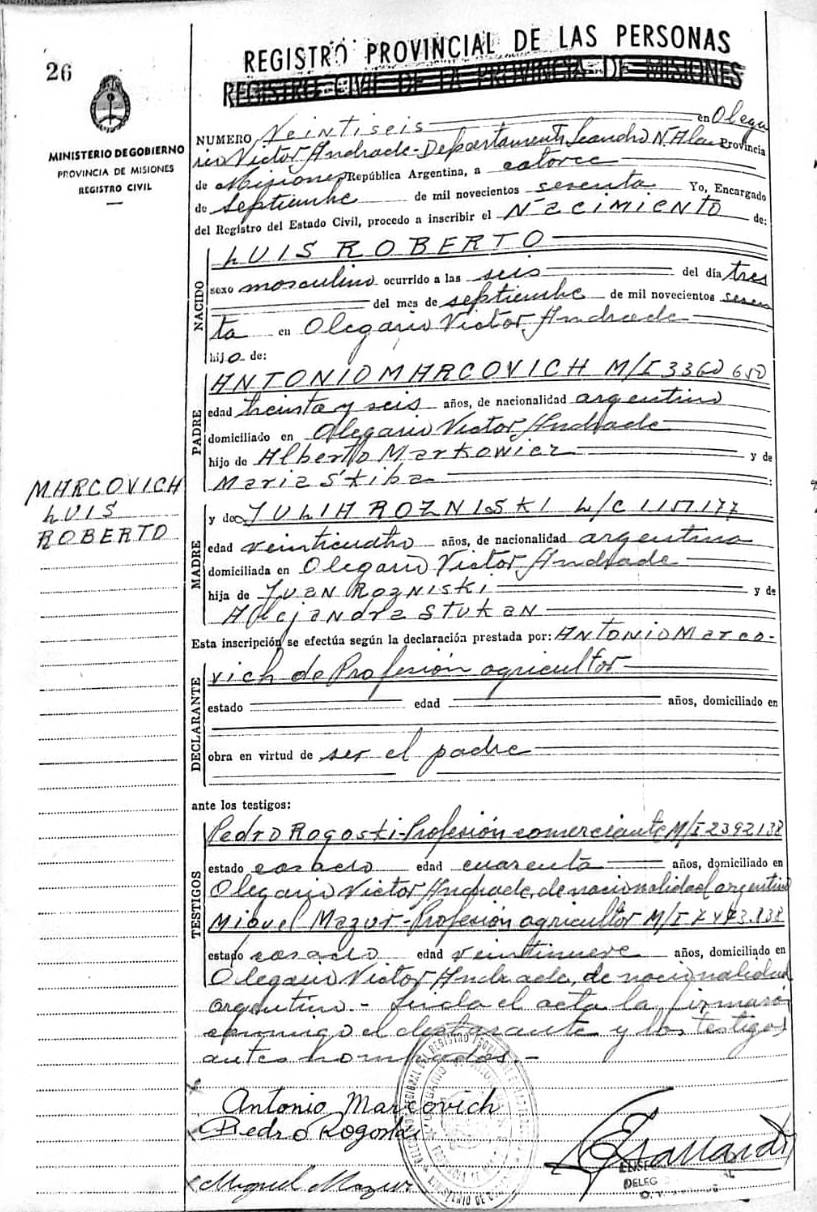 26
MINISTERIO DE GOBIERNO
PROVINCIA DE MISIONES
REGISTRO CIVIL
REGISTRO PROVINCIAL DE LAS PERSONAS
REGISTRO CIVIL DE LA PROVINCIA DE MISIONES
NUMERO Veintiseis en Olega
rio Victor Andrade-Departamento Leandro N. Alem Provincia
de Misiones República Argentina, a catorce
de septiembre de mil novecientos sesenta Yo, Encargado
del Registro del Estado Civil, procedo a inscribir el NACIMIENTO de:
NACIDO
LUIS ROBERTO
sexo masculino ocurrido a las seis del día tres
del mes de septiembre de mil novecientos sesen
ta en Olegario Victor Andrade
hijo de:
PADRE
ANTONIO MARCOVICH M/I 3360650
edad treinta y seis años, de nacionalidad argentino
domiciliado en Olegario Victor Andrade
hijo de Alberto Markowicz y de
Maria Skiba :
MARCOVICH
LUIS
ROBERTO
MADRE
y de JULIA ROZNISKI L/C
edad veinticuatro años, de nacionalidad argentina
domiciliada en Olegario Victor Andrade
hija de Juan Rozniski y de
Alejandra Stukan
Esta inscripción se efectúa según la declaración prestada por: Antonio Marco-
DECLARANTE
vich de Profesión agricultor
estado edad años, domiciliado en
obra en virtud de ser el padre
ante los testigos:
TESTIGOS
Pedro Rogoski-Profesión comerciante M/I 2392138
estado casado edad cuarenta años, domiciliado en
Olegario Victor Andrade, de nacionalidad argentino
Miguel Mazur-Profesión agricultor M/I
estado casado edad veintinueve años, domiciliado en
Olegario Victor Andrade, de nacionalidad
argentino.- Leida el acta la firmaron
conmigo el declarante y los testigos
antes nombrados.-
Antonio Marcovich
Pedro Rogoski
Miguel Mazur